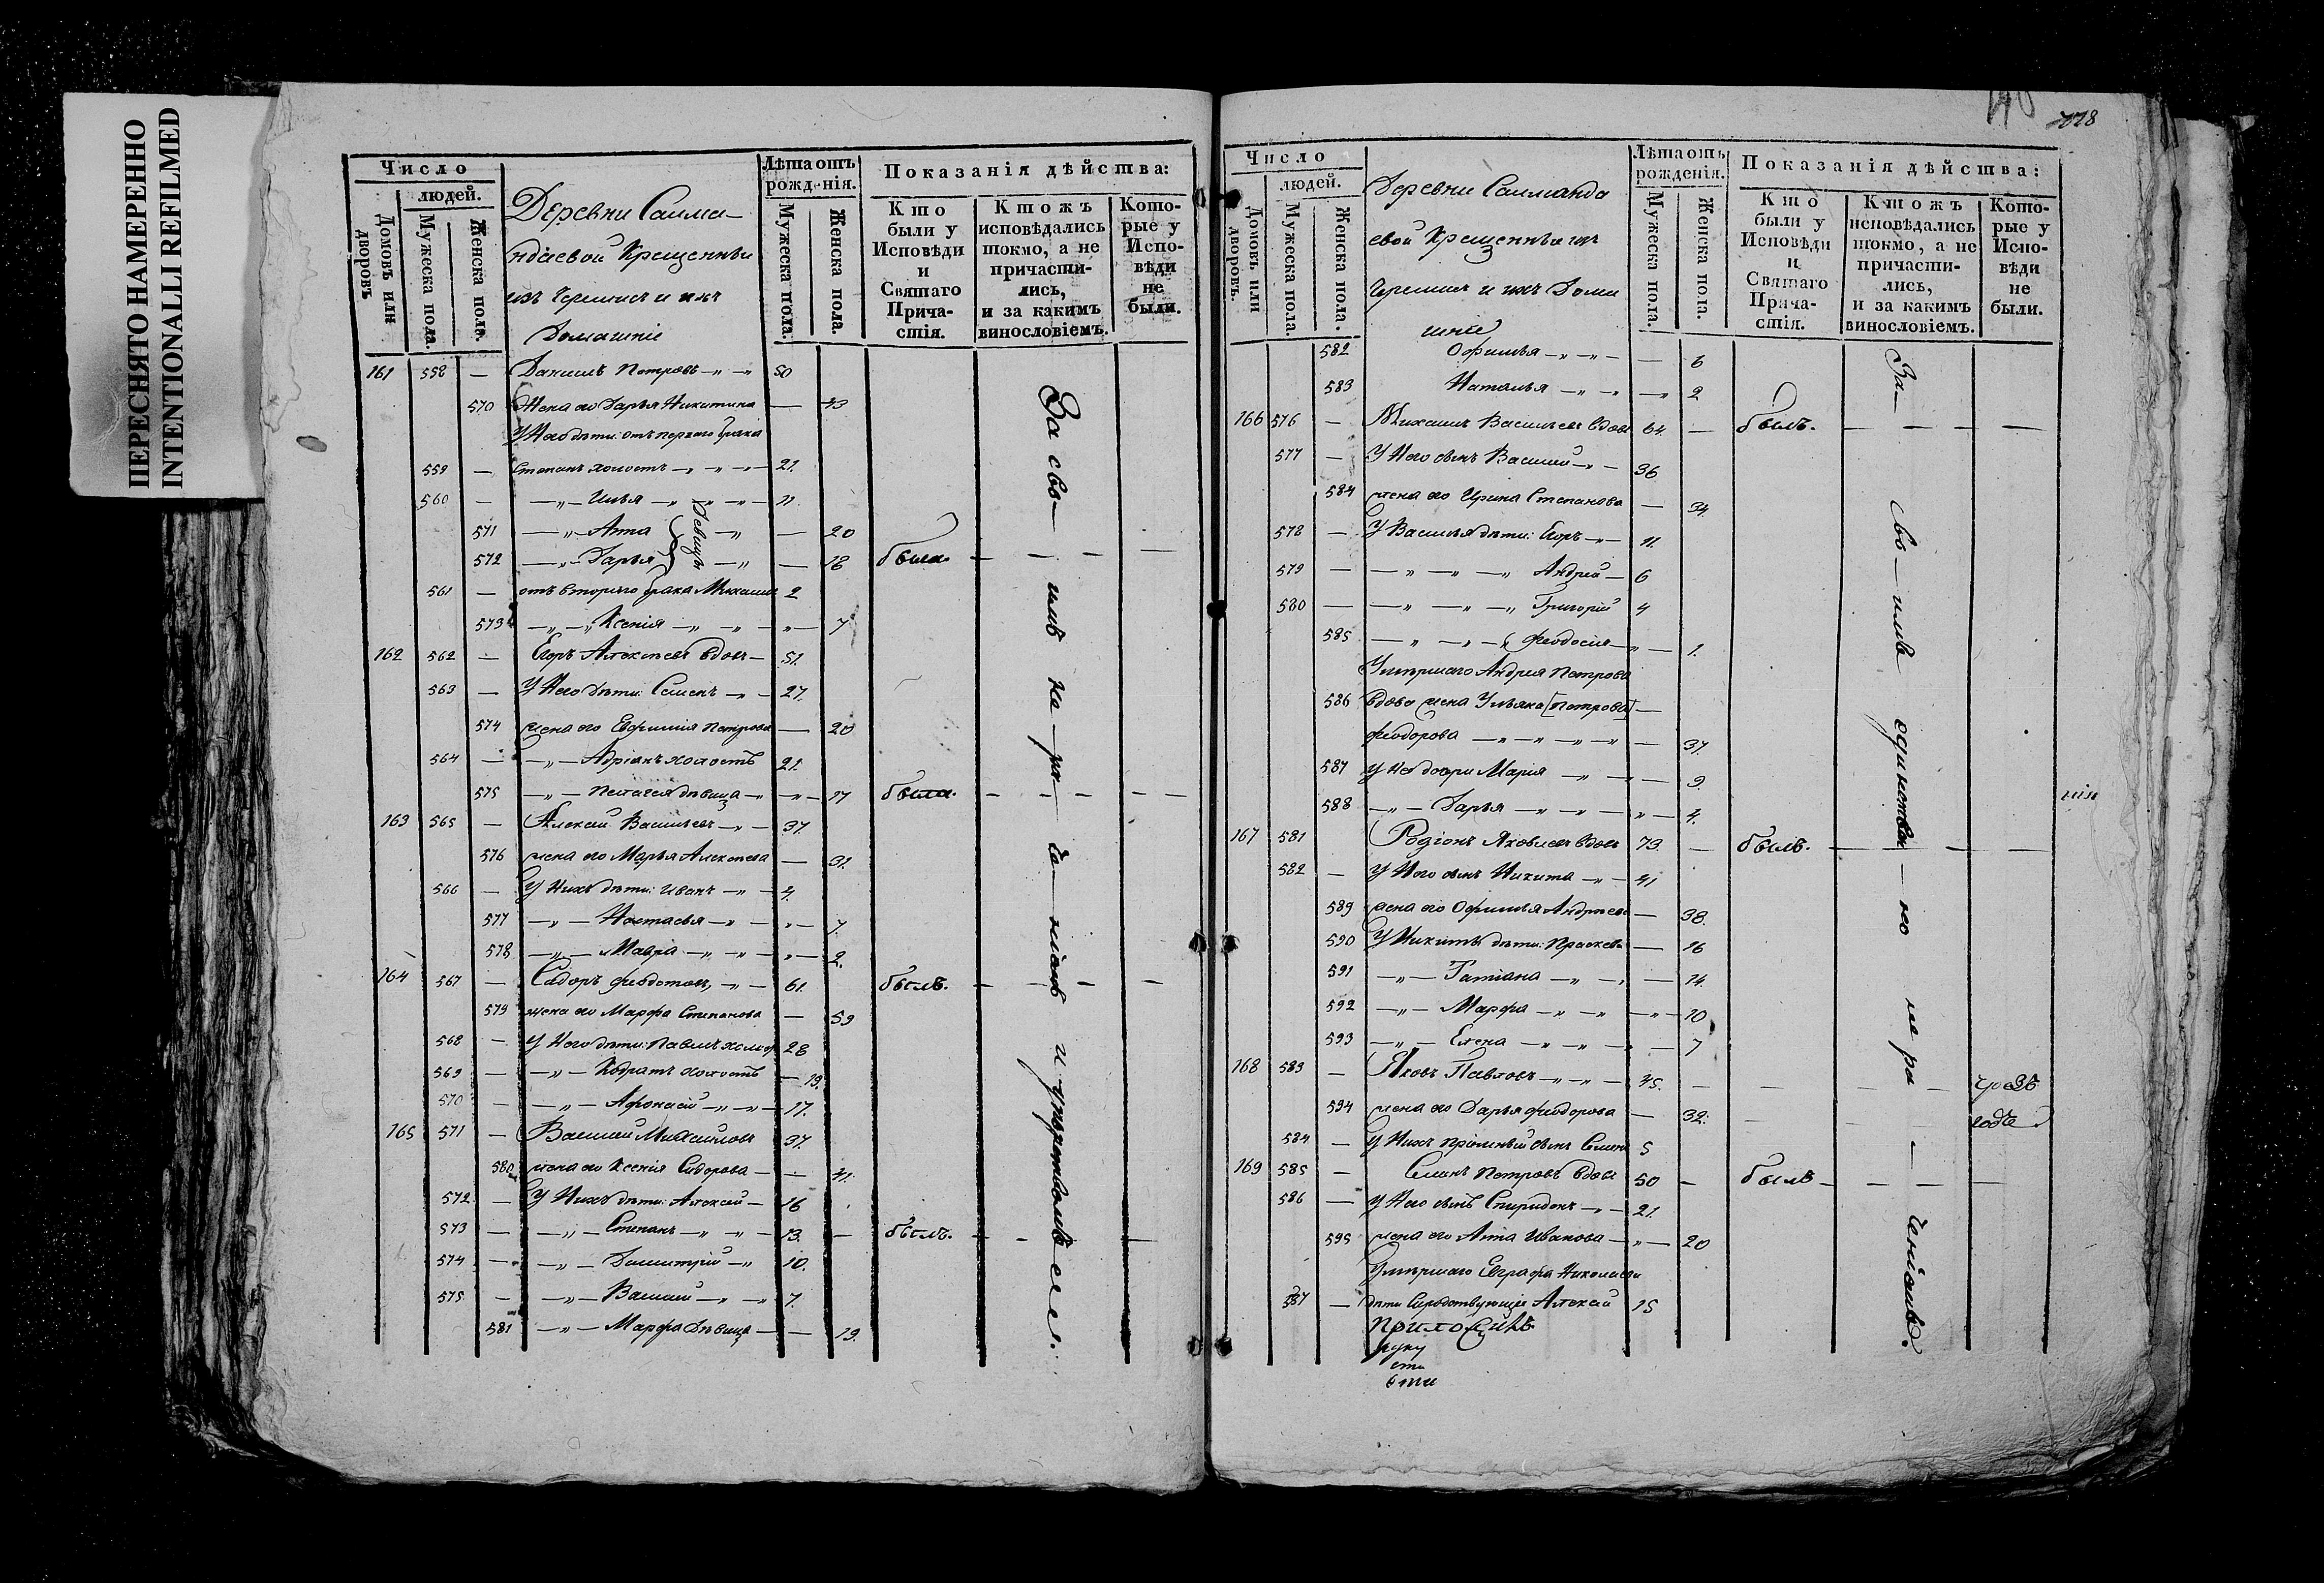 ПЕРЕСНЯТО НАМЕРЕННО
INTENTIONALLI REFILMED
Число
людей.
Домовъ или дворовъ
Мужеска пола.
Женска пола.
Деревни Саима-
ндаевой Крещенныи
изъ Черемисъ и ихъ
Домашніе
Лѣта отъ рожденія.
Мужеска пола.
Женска пола.
Показанія дѣйства:
Кто были у Исповѣди и Святаго Прича-стія.
Ктожъ исповѣдались токмо, а не причасти-лись, и за какимъ винословіемъ.
Кото-рые у Испо-вѣди не были.
161 558 — Данилъ Петровъ 50
570 Жена его Дарья Никитина — 43
У Него дѣти: отъ перваго брака
559 — Степанъ холостъ 21.
560 — Илья 11.
571 Анна — 20
572 Дарья — 18 была.
Девицы
561 — отъ втораго брака Михаилъ 2
573 Ксенія 7
162 562 — Егоръ Алексѣевъ вдовъ 51.
563 — У Него дѣти: Семенъ 27.
574 жена его Евфимія Петрова — 20
564 — Адріанъ холостъ 21.
575 Пелагея дѣвица 17 была.
163 565 — Алексѣй Васильевъ 37.
576 жена его Марья Алексѣева — 31.
566 — У Нихъ дѣти: Иванъ 4.
577 Настасья 7.
578 Мавра 2.
164 567 — Сидоръ Федотовъ 61. былъ.
579 жена его Марфа Степанова — 59
568 — У Него дѣти: Павелъ холос 28
569 — Кодратъ холостъ 19.
570 — Афонасій 17.
165 571 — Василий Михайловъ 37.
580 жена его Ксенія Сидорова 41.
572 — У Нихъ дѣти: Алексѣй 16
573 — Степанъ 13. — былъ.
574 — Димитрій 10.
575 — Василий 7.
581 Марфа дѣвица — 19.
За сво-имъ не-ра-че-ніемъ и упрямствомъ
178
Число
людей.
Домовъ или дворовъ.
Мужеска пола.
Женска пола.
Деревни Саиманда
евой Крещенныи изъ
Черемисъ и ихъ Дома
шніе
Лѣта отъ рожденія.
Мужеска пола.
Женска пола.
Показанія дѣйства:
Кто были у Исповѣди и Святаго Прича-стія.
Ктожъ исповѣдались токмо, а не причасти-лись, и за какимъ винословіемъ.
Кото-рые у Испо-вѣди не были.
582 Офимья — 6
583 Наталья 2
166 576 — Михаилъ Васильевъ вдовъ 64. — былъ.
577 — У Него сынъ Василий 36
584 жена его Ирина Степанова — 34.
578 — У Василья дѣти: Егоръ 11.
579 — Андрей 6
580 — Григорій 4
585 Феодосия 1.
Умершаго Андрея Петрова
586 вдова жена Ульяна [Петрова] —
Феодорова — 37.
587 У Нея дочери Марія — 9.
588 Дарья 4.
167 581 Родіонъ Яковлевъ вдовъ 73. — былъ.
582 — У Него сынъ Никита 41
589 жена его Офимья Андреева — 38.
590 У Никиты дѣти: Праскева — 16
591 Татіана — 14.
592 Марфа 10
593 Елена — 7
168 583 — Яковъ Павловъ 45.
594 жена его Дарья Феодорова — 32.
584 — У Нихъ пріемный сынъ Семен 5
169 585 — Семенъ Петровъ вдовъ 50 — былъ
586 — У Него сынъ Спиридонъ 21.
595 жена его Анна Иванова 20
Умершаго Евграфа Николаева
587 — дѣти сиротствующіе Алексѣй 15
руку
За- сво-имъ не ра-ченіемъ.